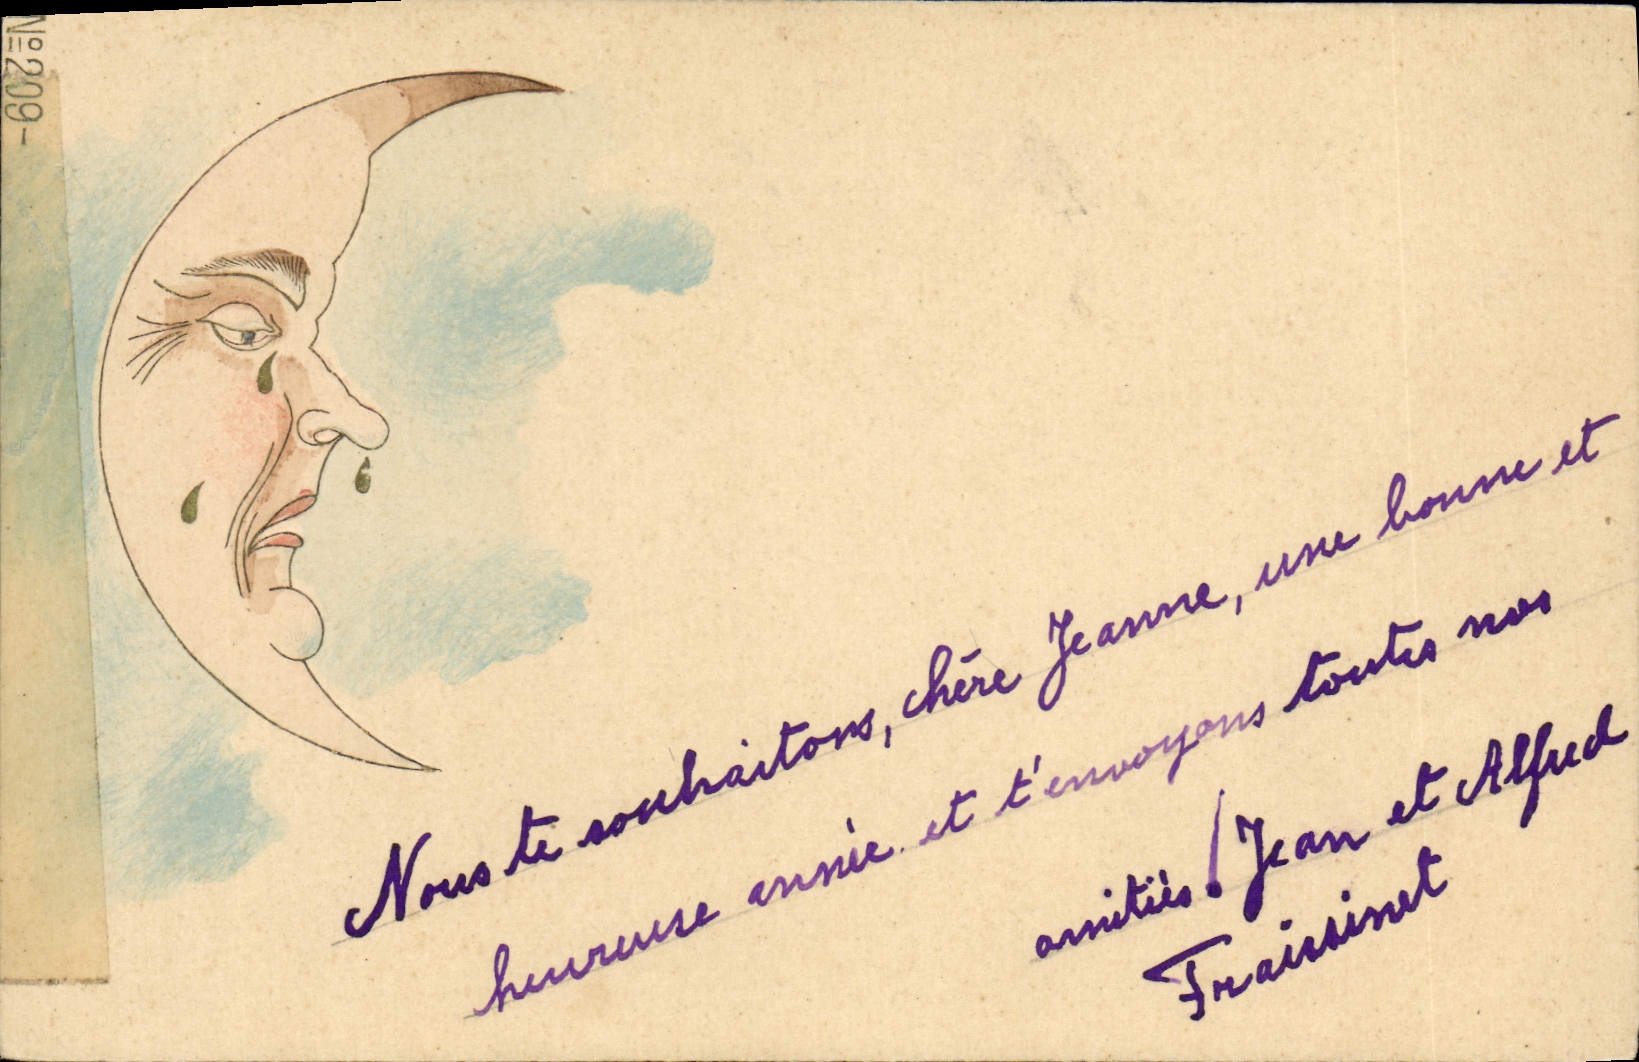 Nº 209-
Nous te souhaitons, chère Jeanne, une bonne et
heureuse année et t'envoyons toutes nos
amitiés! Jean et Alfred
Fraissinet